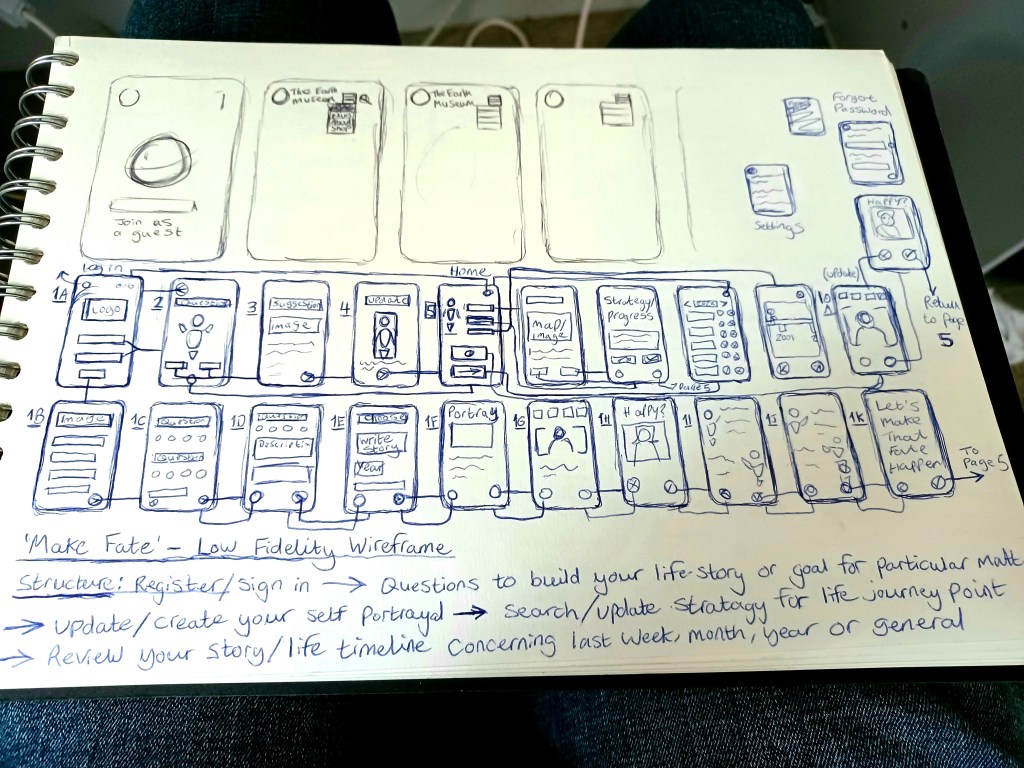 The Earth
Museum
The Earth
Museum
Shop
Join as
a guest
Forgot
Password
Settings
Happy?
Log in
Home
(update)
Return
to Page
5
1A
Logo
2
Question
3
Suggestion
image
4
update
5
map/
image
Strategy/
progress
2001
→ Page 5
1B
Image
1C
Question
Question
1D
Question
Description
1E
choose
write
story
year
1F
Portray
1G
1H
Happy?
1I
1J
1K
Let's
Make
That
Fate
Happen
To
Page 5
'Make Fate' – Low Fidelity Wireframe
Structure: Register/sign in → Questions to build your life-story or goal for particular matt
→ update/create your self Portrayal → search/update stratagy for life journey Point
→ Review your story/life timeline Concerning last week, month, year or general